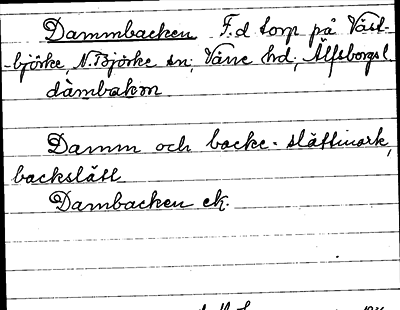 Dammbacken F.d torp på Väst-
-björke, N. Björke sn, Väne hd, Älfsborgs l.
dàmbakɑn
Damm och backe = slåttmark,
backslått
Dambacken ek.